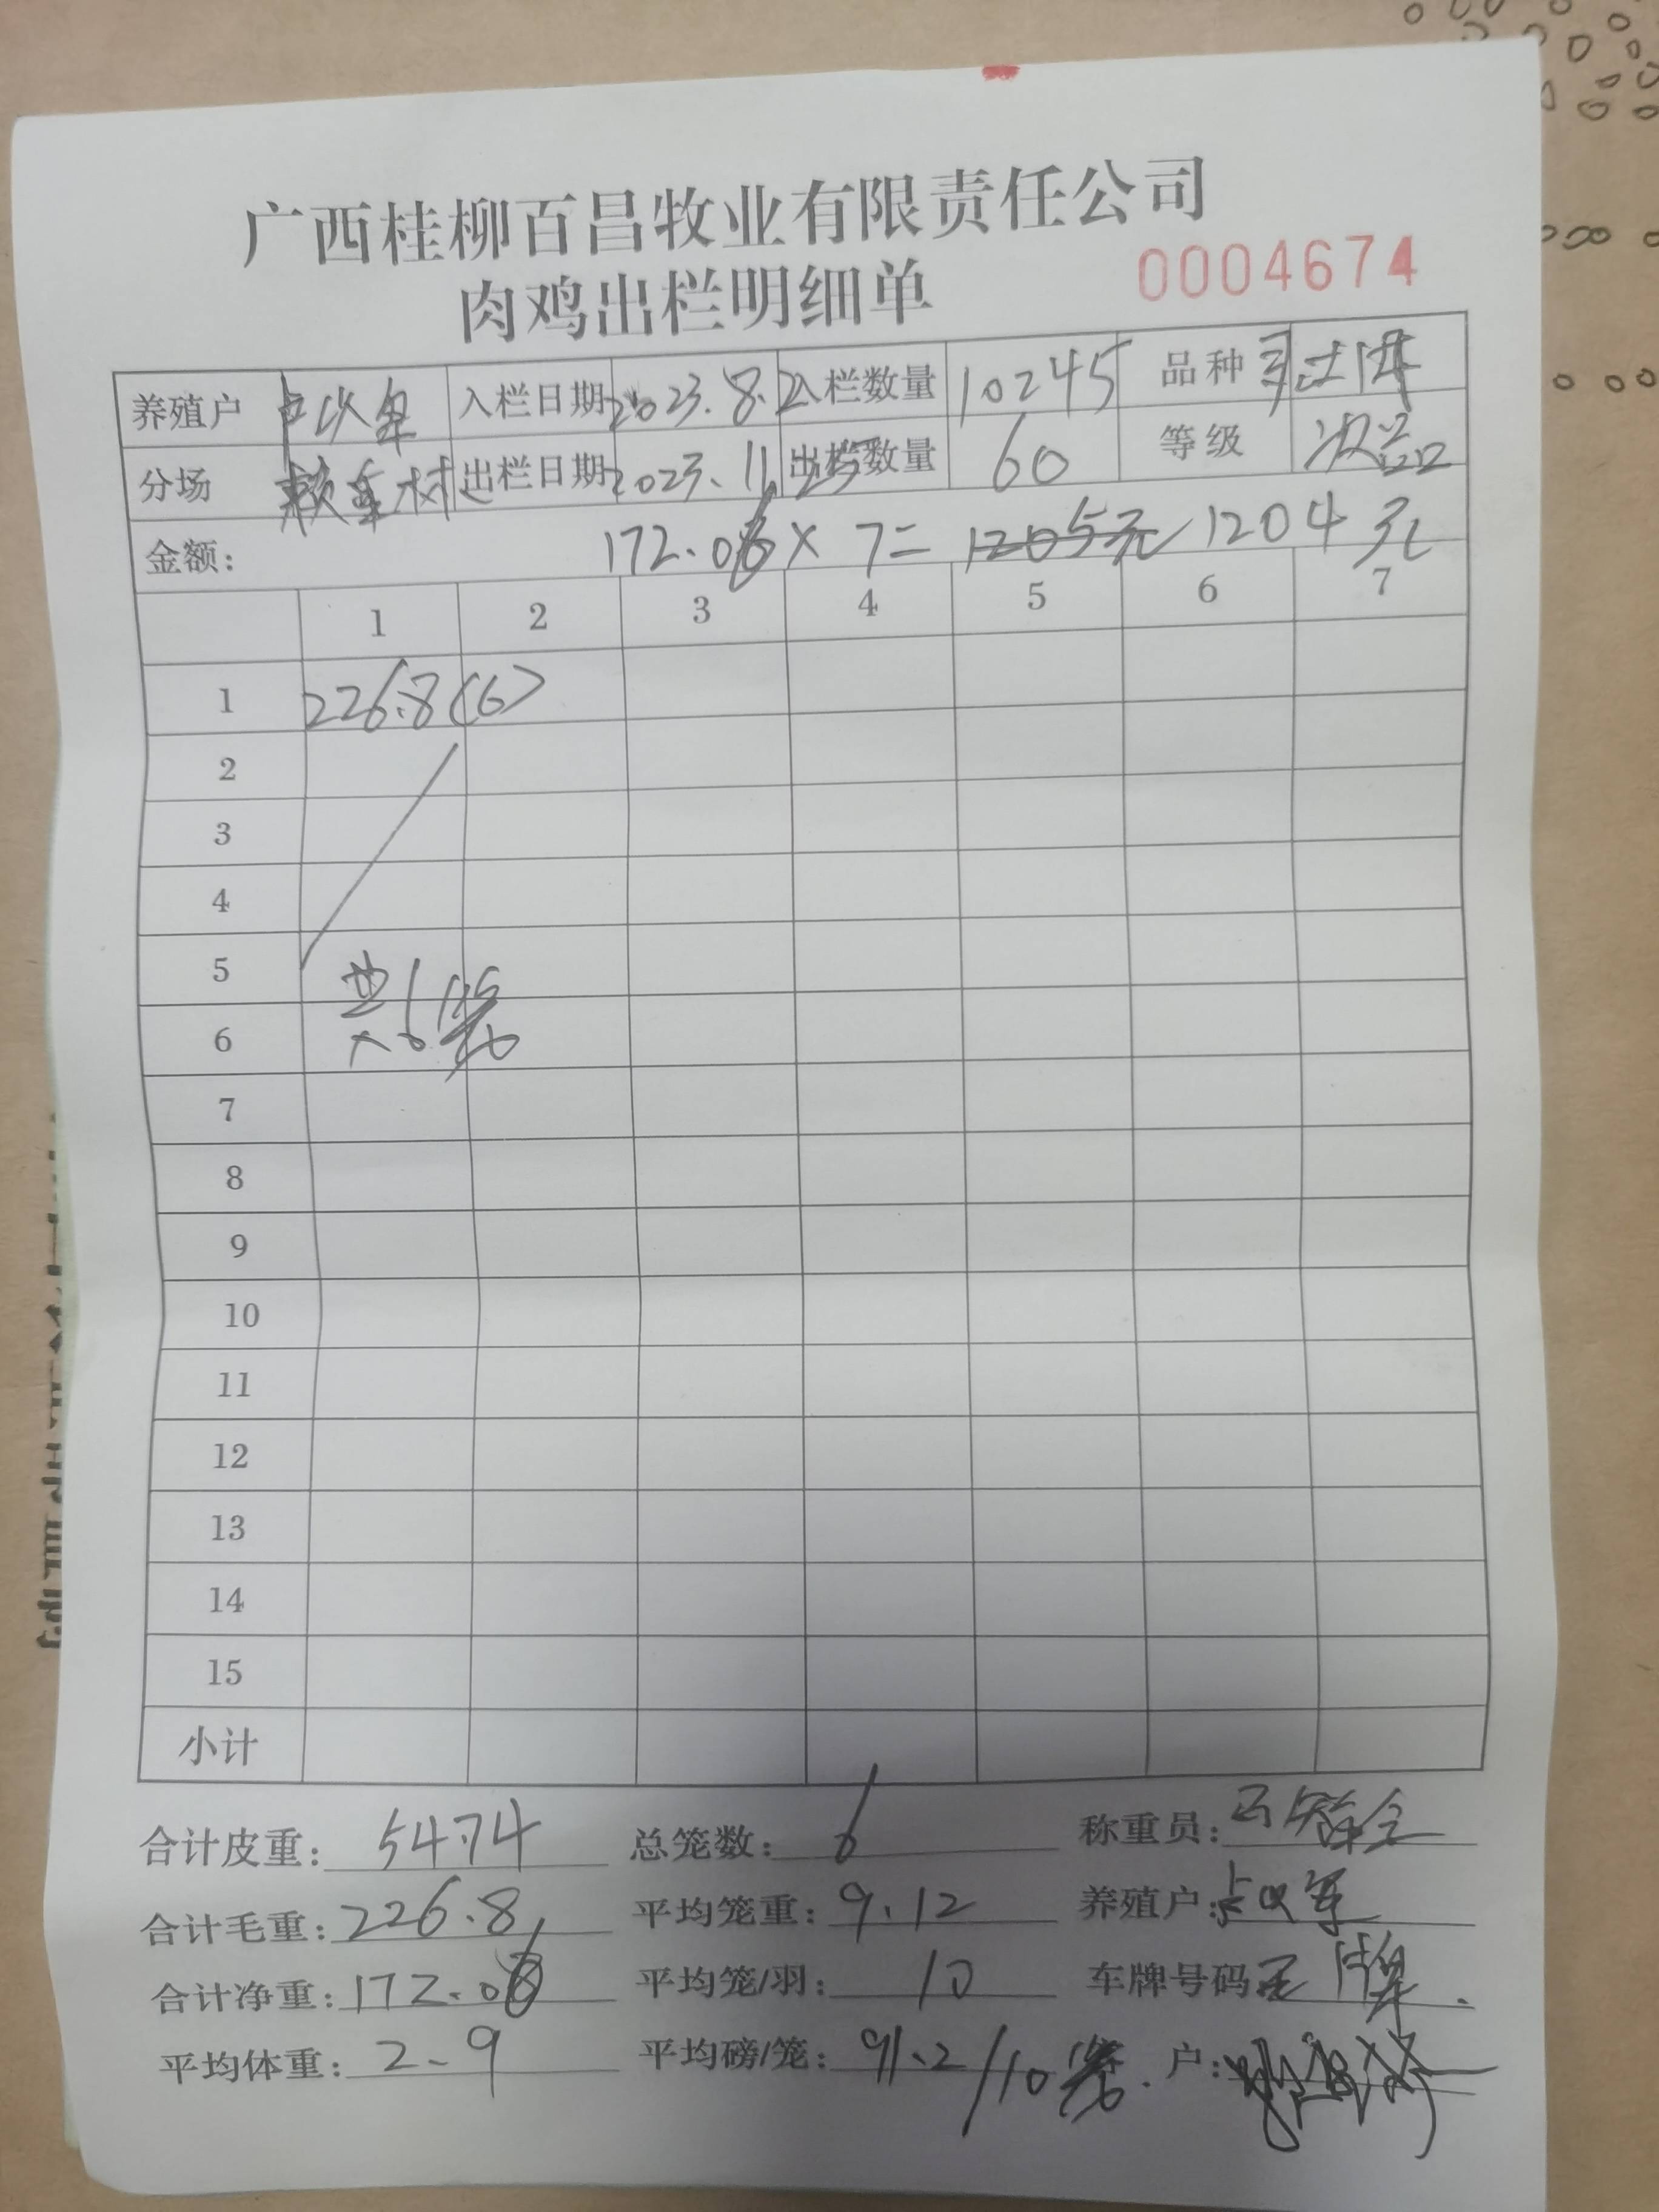 广西桂柳百昌牧业有限责任公司
肉鸡出栏明细单 0004674
养殖户 入栏日期 2023.8.2 入栏数量 10245 品种
分场 村 出栏日期 2023.11 出栏数量 60 等级 次品
金额: 172.06 × 7 = 1205元 1204元
1 2 3 4 5 6 7
1 226.8(6)
2
3
4
5
6 共6笼
7
8
9
10
11
12
13
14
15
小计
合计皮重: 54.74 总笼数: 6 称重员:
合计毛重: 226.8 平均笼重: 9.12 养殖户:
合计净重: 172.06 平均笼/羽: 10 车牌号码 无牌.
平均体重: 2.9 平均磅/笼: 91.2/10笼. 户: